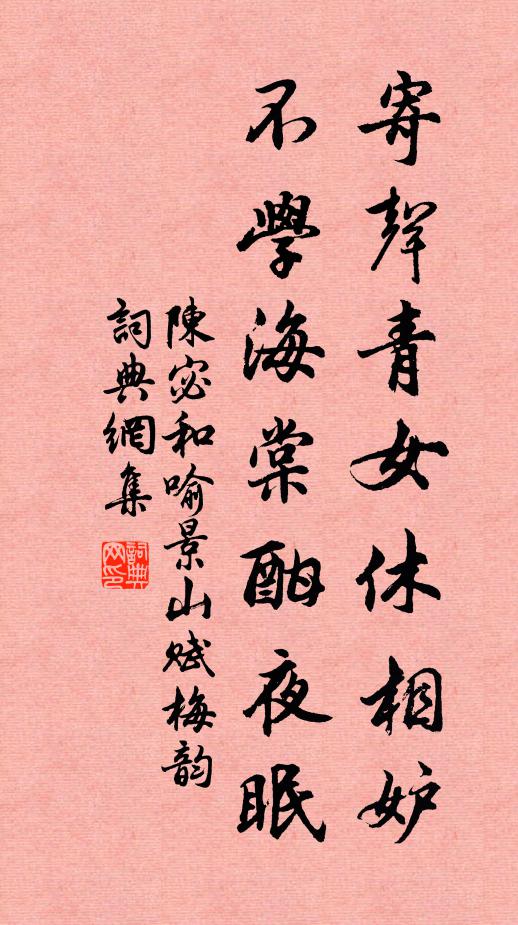 寄聲青女休相妒
不學海棠酣夜眠
陳宓和喻景山赋梅韵
詞典網集
詞典
网印